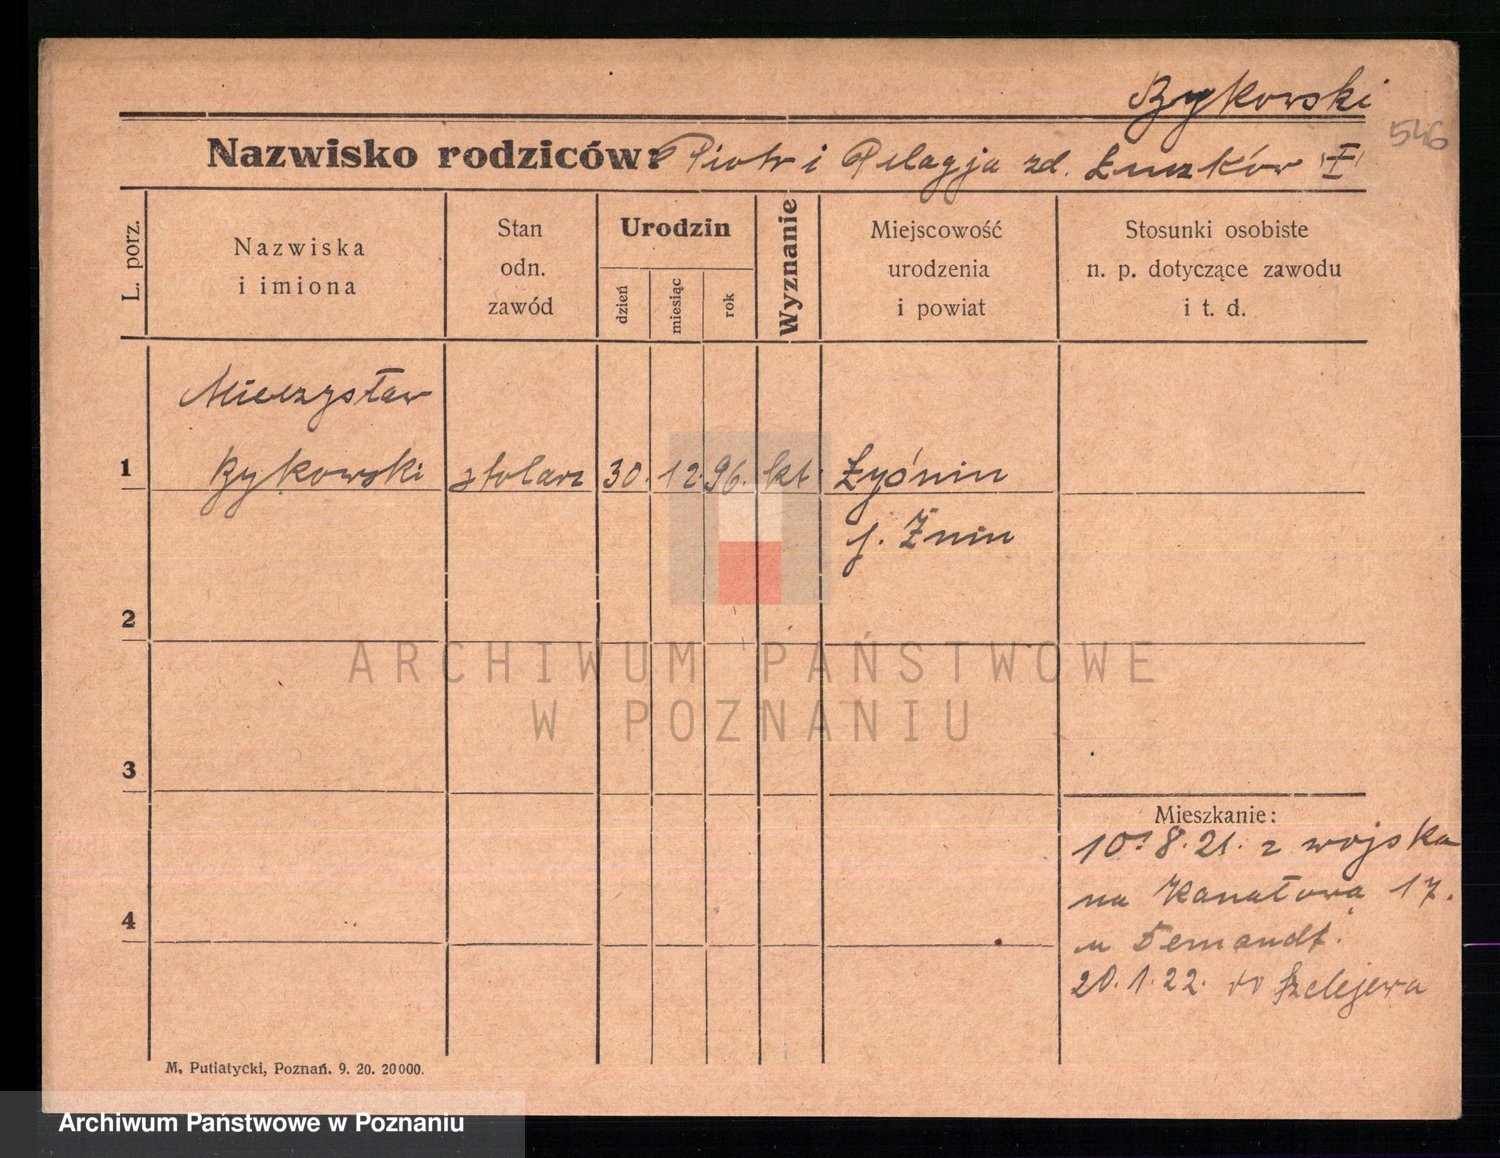 Bykowski
546
Nazwisko rodziców: Piotr i Pelagja zd. Łuczków
L. porz.
Nazwiska
i imiona
Stan
odn.
zawód
Urodzin
dzień
miesiąc
rok
Wyznanie
Miejscowość
urodzenia
i powiat
Stosunki osobiste
n. p. dotyczące zawodu
i t. d.
Mieczysław
1 Bykowski stolarz 30. 12. 96. kt.
p. Żnin
2
3
4
Mieszkanie:
10. 8. 21. z wojska
na Kanałową 17.
u
20. 1. 22. do Szelejewa
M. Putiatycki, Poznań. 9. 20. 20000.
ARCHIWUM PAŃSTWOWE
W POZNANIU
Archiwum Państwowe w Poznaniu